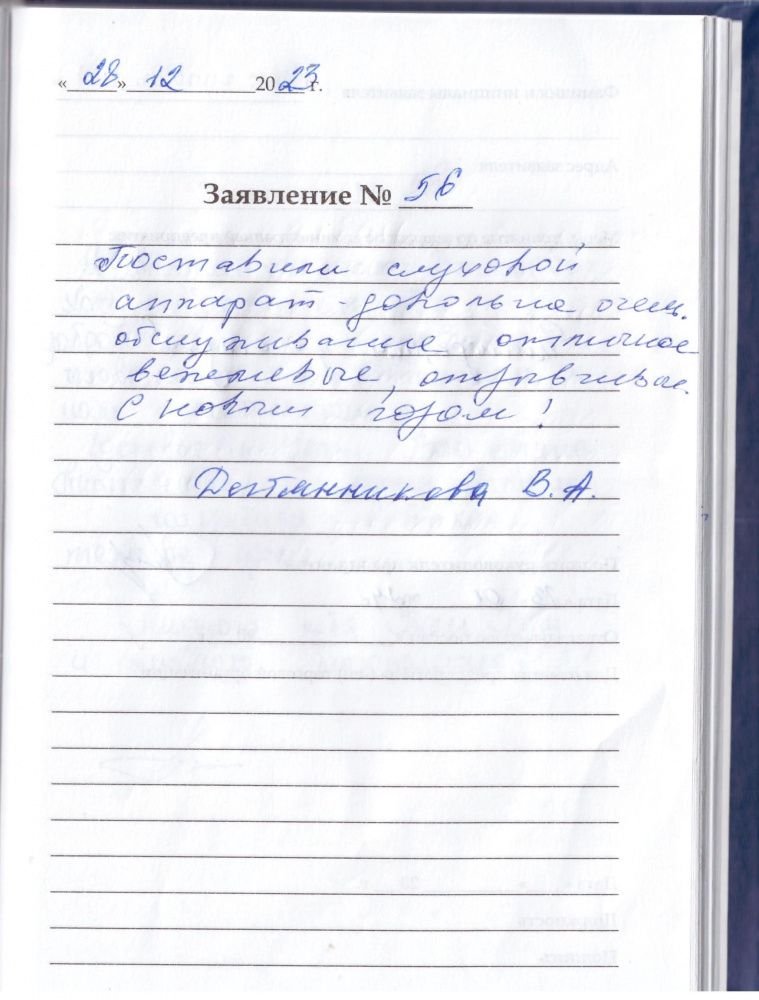 «28» 12 2023 г.
Заявление № 56
Поставили слуховой
аппарат - довольна очень.
обслуживание отличное
вежливые, отзывчивые.
С новым годом!
В. А.